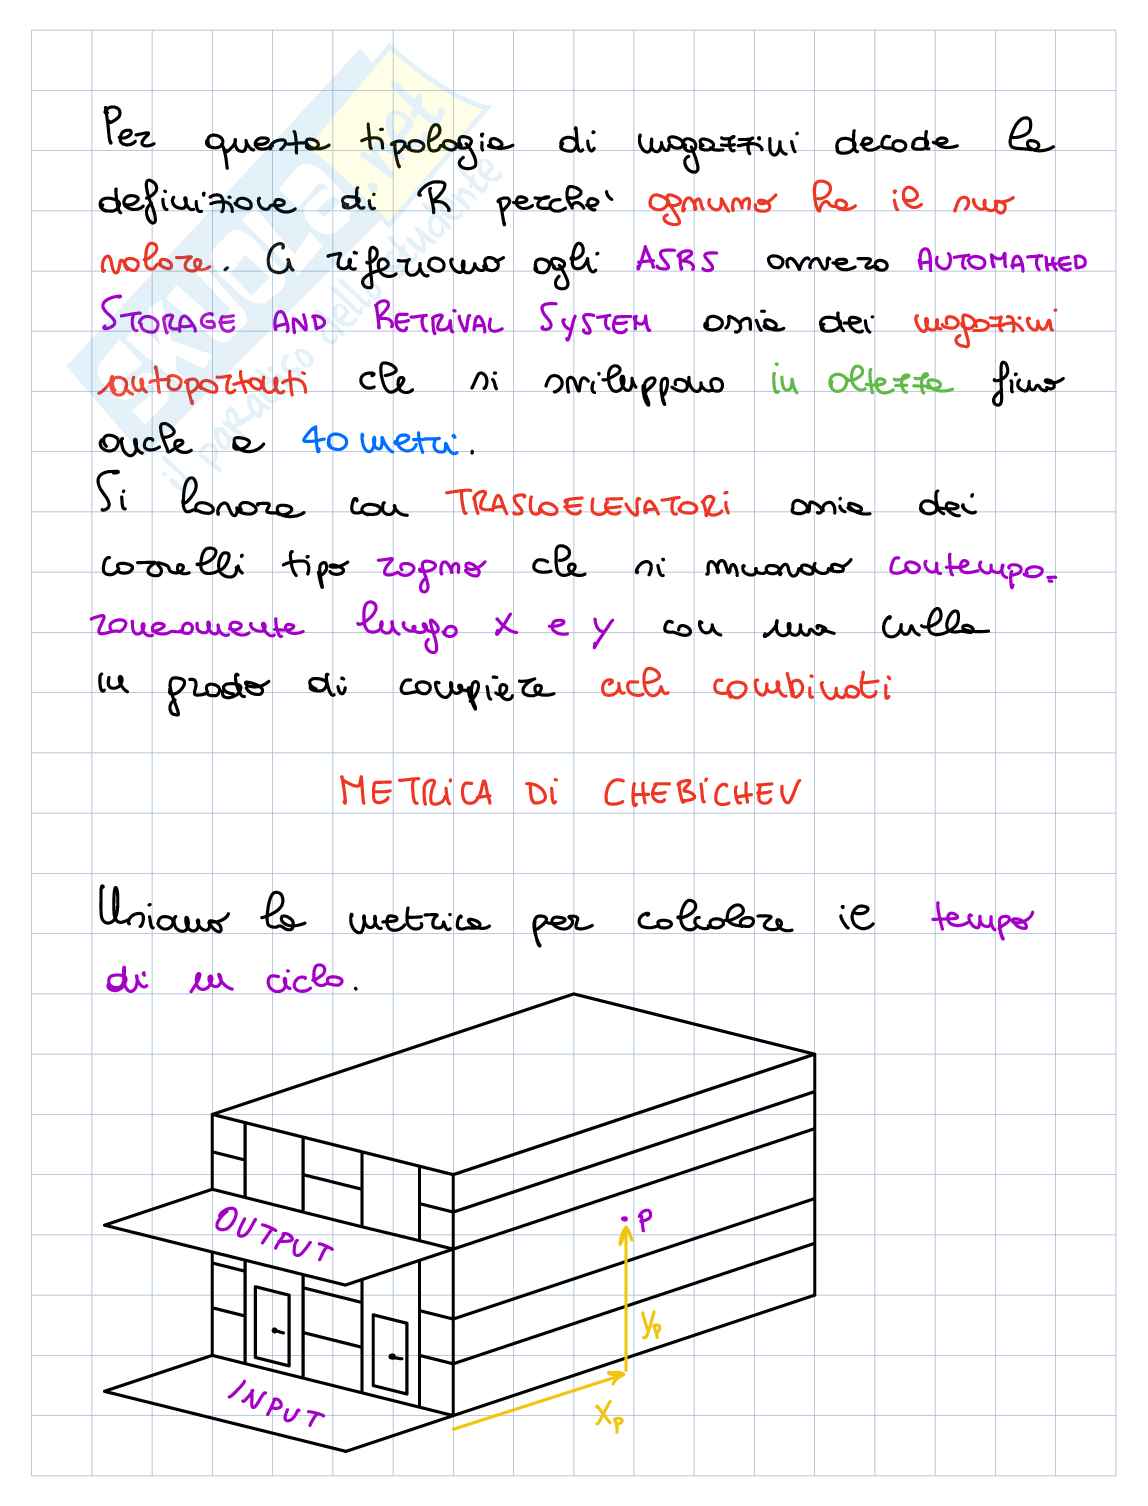 Per questa tipologia di magazzini decade la
definizione di R perche' ognuno ha il suo
valore. Ci riferiamo agli ASRS ovvero AUTOMATHED
STORAGE AND RETRIVAL SYSTEM ossia dei magazzini
autoportanti che si sviluppano in altezza fino
anche a 40 metri.
Si lavora con TRASLOELEVATORI ossia dei
carrelli tipo ragno che si muovono contempo-
raneamente lungo x e y con una culla
in grado di compiere cicli combinati
METRICA DI CHEBICHEV
Usiamo la metrica per calcolare il tempo
di un ciclo.
OUTPUT
P
yp
INPUT
xp
SKUOLA.net
il paradiso dello studente